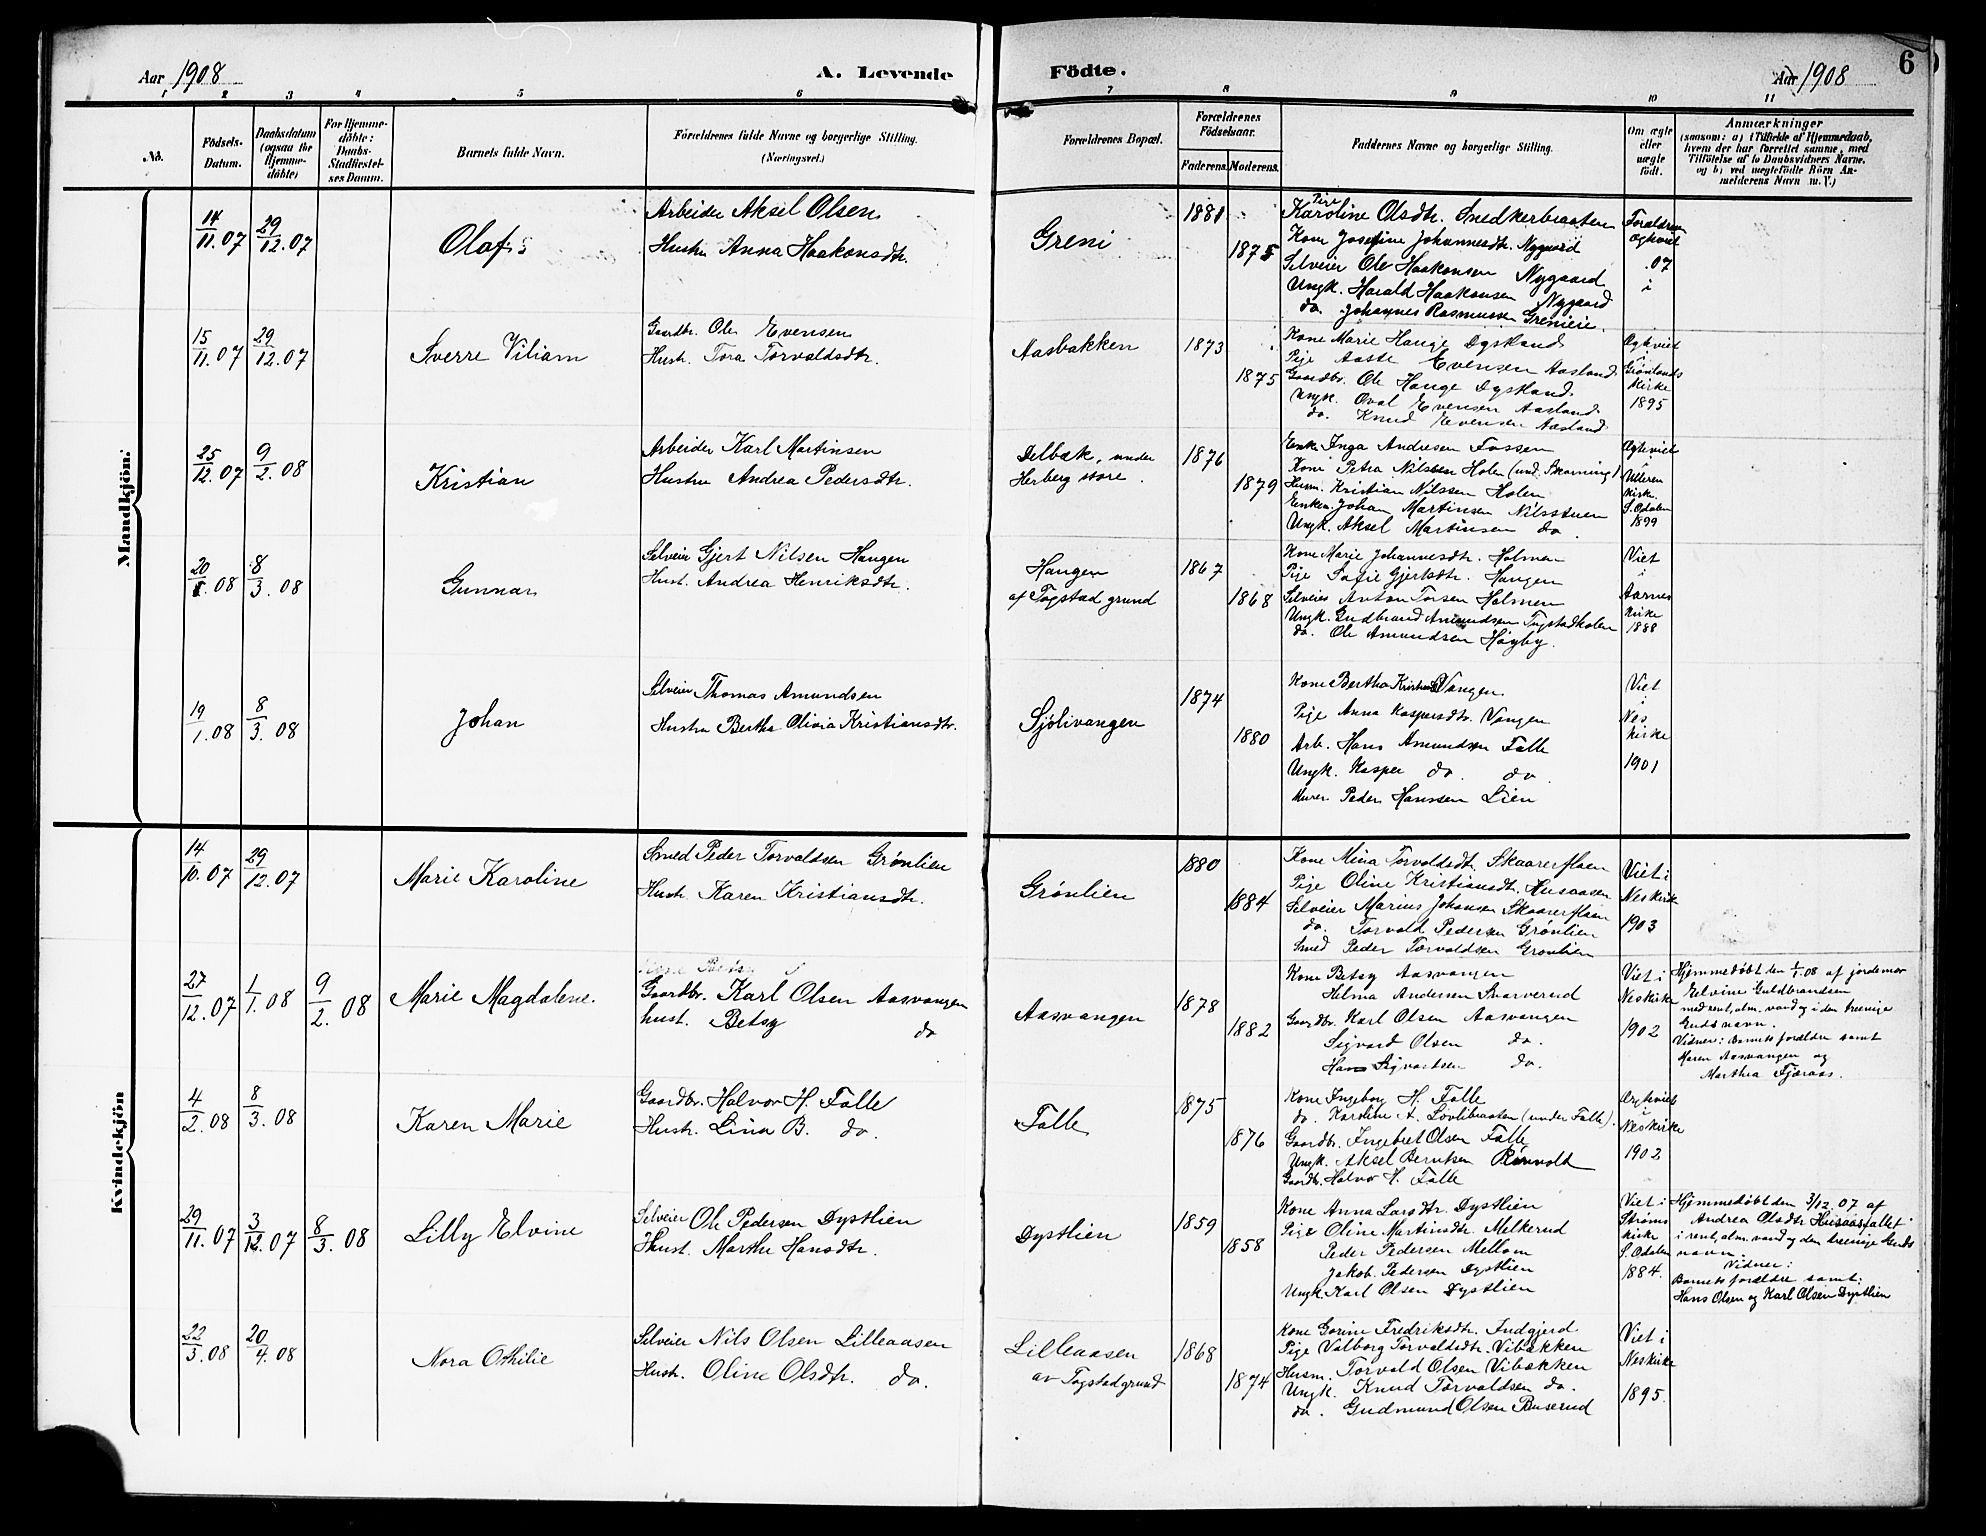 Aar 1908
A. Levende
Födte.
Aar 1908
6
1 2 3 4 5 6 7 8 9 10 11
No.
Födsels-
Datum.
Daabsdatum
(ogsaa for
Hjemme-
döbte)
For Hjemme-
döbte:
Daabs-
Stadfæstel-
ses Datum.
Barnets fulde Navn.
Forældrenes fulde Navne og borgerlige Stilling.
(Næringsvei.)
Forældrenes Bopæl.
Forældrenes
Födselsaar.
Faderens.
Moderens.
Faddernes Navne og borgerlige Stilling.
Om ægte
eller
uægte
födt.
Anmærkninger
(saasom: a) i Tilfælde af Hjemmedaab,
hvem der har forrettet samme, med
Tilföielse af to Daabsvidners Navne.
og b) ved uægtefödte Börn An-
melderens Navn m. V.)
Mandkjön:
14/11.07
29/12.07
Olaf
Arbeider Aksel Olsen
Hustru Anna Haakonsdtr.
Greni
1881
1875
Pige
Karoline Olsdtr. Snedkerbraaten
Kone Josefine Johannesdtr. Nygaard
Selveier Ole Haakonsen Nygaard
Ungk. Harald Haakonsen Nygaard
do. Johannes Rasmussen Grenieie.
Forældrene
Ægteviet
.07
i
15/11.07
29/12.07
Sverre Viliam
Gaardbr. Ole Evensen
Hustr. Tora Torvaldsdtr.
Aasbakken
1873
1875
Kone Marie Hauge Dystland
Pige Aaste Evensen Aasland
Gaardbr. Ole Hauge Dystland
Ungk. Oval Evensen Aasland
do. Knud Evensen Aasland
Ægteviet
i
Grønlands
kirke
1895
25/12.07
9/2.08
Kristian
Arbeider Karl Martinsen
Hustru Andrea Pedersdtr.
Delbæk, under
Herberg store.
1876
1879
Enke Inga Andresen Fossen
Kone Petra Nilssen Holen (und. Skarning)
Husm. Kristian Nilssen Holen
Enkem. Johan Martinsen Nilsstuen
Ungk. Aksel Martinsen do.
Ægteviet
i
Ulleren
kirke.
S. Odalen
1899
20/1.08
8/3.08
Gunnar
Selveier Gjert Nilsen Haugen
Hust. Andrea Henriksdtr.
Haugen
af Togstad grund
1867
1868
Kone Marie Johannesdtr. Holmen
Pige Sofie Gjertsdtr. Haugen
Selveier Anton Torsen Holmen
Ungk. Gudbrand Amundsen Togstadholen
do. Ole Amundsen Høyby.
Viet
i
Aarnes
kirke
1888
19/1.08
8/3.08
Johan
Selveier Thomas Amundsen
Hustru Bertha Olivia Kristiansdtr.
Sjølivangen
1874
1880
Kone Bertha Vangen
Pige Anna Kaspersdtr. Vangen
Arb. Hans Amundsen Falle
Ungk. Kasper do. do.
Murer Peder Hanssen Lien
Viet
i
Nes
kirke
1901
Kvindekjön
14/10.07
29/12.07
Marie Karoline
Smed Peder Torvaldsen Grønlien
Hustr. Karen Kristiansdtr.
Grønlien
1880
1884
Kone Mina Torvaldsdtr. Skaarerflaen
Pige Oline Kristiansdtr. Husaasen
Selveier Marius Johansen Skaarerflaen
do. Torvald Pedersen Grønlien
Smed Peder Torvaldsen Grønlien
Viet i
Neskirke
1903
27/12.07
1/1.08
9/2.08
Marie Magdalene.
Gaardbr. Karl Olsen Aasvangen
hust. Betsy do
Aasvangen
1878
1882
Kone Betsy Aasvangen
Helma Andersen Snarverud
Gaardbr. Karl Olsen Aasvangen
Sigvard Olsen do.
Hans Sigvartsen do.
Viet i
Neskirke
1902
Hjemmedøbt den 1/1.08 af jordemor
Elvine Guldbrandsen
med rent, alm. vand og i den treenige
Guds navn.
Vidner: Barnets forældre samt
Maren Aasvangen og
Marthea Fjæraas.
4/2.08
8/3.08
Karen Marie
Gaardbr. Halvor H. Falle
Hustr. Lina B. do.
Falle
1875
1876
Kone Ingeborg H. Falle
do. Karoline A. Løvlibraaten (under Falle).
Gaardbr. Ingebret Olsen Falle
Ungk. Aksel Berntsen Rønvold
Gaardbr. Halvor H. Falle
Ægteviet
i
Neskirke
1902
29/11.07
3/12.07
8/3.08
Lilly Elvine
Selveier Ole Pedersen Dystlien
Hust. Marthe Hansdtr.
Dystlien
1859
1858
Kone Anna Larsdtr. Dystlien
Pige Oline Martinsdtr. Melkerud
Peder Pedersen Mellom
Jakob. Pedersen Dystlien
Ungk. Karl Olsen Dystlien
Viet i
Strøms
kirke
S. Odalen
1884.
Hjemmedøbt den 3/12.07 af
Andrea Olsdtr. Husaasfallet
i rent, alm. vand og den treenige Guds
navn.
Vidner:
Barnets forældre samt:
Hans Olsen og Karl Olsen Dystlien
22/3.08
20/4.08
Nora Othilie
Selveier Nils Olsen Lilleaasen
Hustr. Oline Olsdtr. do.
Lilleaasen
av Togstad grund
1868
1874
Kone Gorine Fredriksdtr. Indgjerd
Pige Valborg Torvaldsdtr. Vibækken
Husm. Torvald Olsen Vibækken
Ungk. Knud Torvaldsen do.
do. Gudmund Olsen Buserud
Viet i
Neskirke
1895.